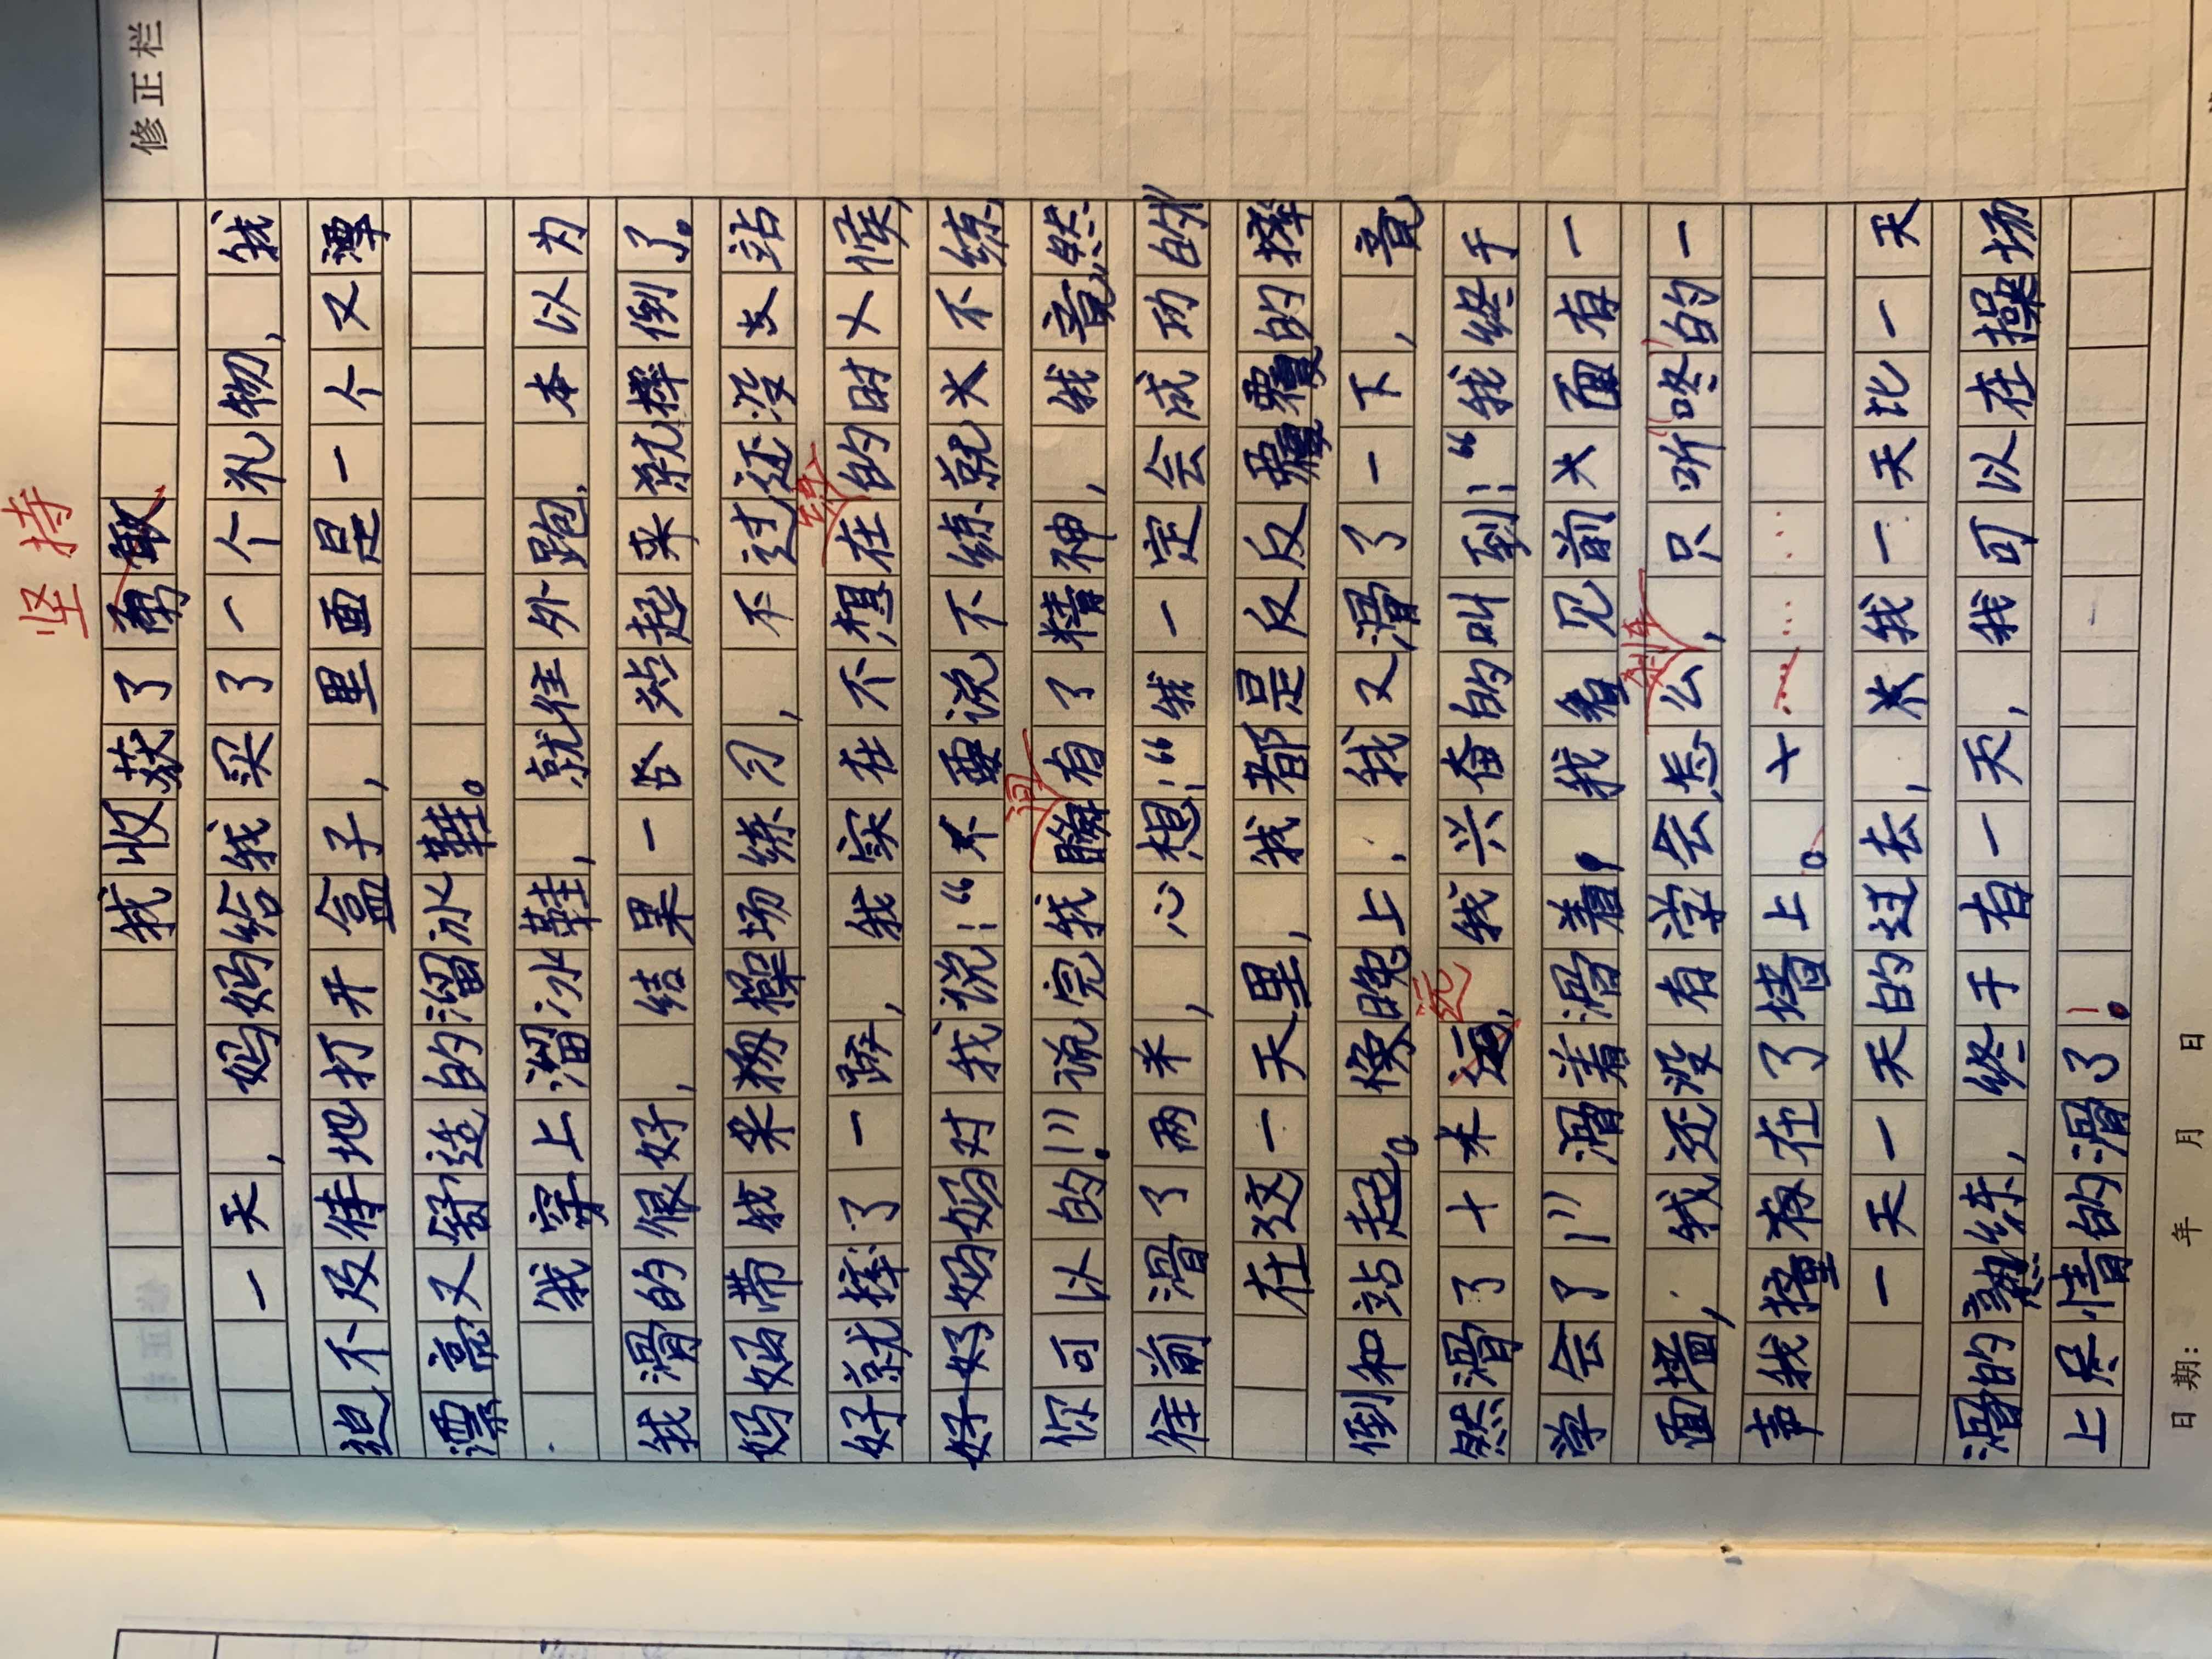 修正栏
坚持
我收获了勇敢
一天，妈妈给我买了一个礼物，我
迫不及待地打开盒子，里面是一个又漂
漂亮又舒适的溜冰鞋。
我穿上溜冰鞋，就往外跑，本以为
我滑的很好，结果一站起来就摔倒了。
妈妈带我来操场练习，不过还没支站
好就摔了一跤，我实在不想在练的时候，
好妈妈对我说：“不要说不练就不练，
你可以的！”说完我瞬间有了精神，我竟然
往前滑了两米，心想：“我一定会成功的！”
在这一天里，我都是反反覆覆的摔
倒和站起。傍晚上，我又滑了一下，竟
然滑了十米远，我兴奋的叫到：“我终于
学会了！”滑着滑着，我看见前面有一
面墙，我还没有学会怎么刹车，只听“咚”的一
声我撞在了墙上。……
一天一天的过去，我一天比一天
滑的熟练，终于有一天，我可以在操场
上尽情的滑了！。
日期： 年 月 日